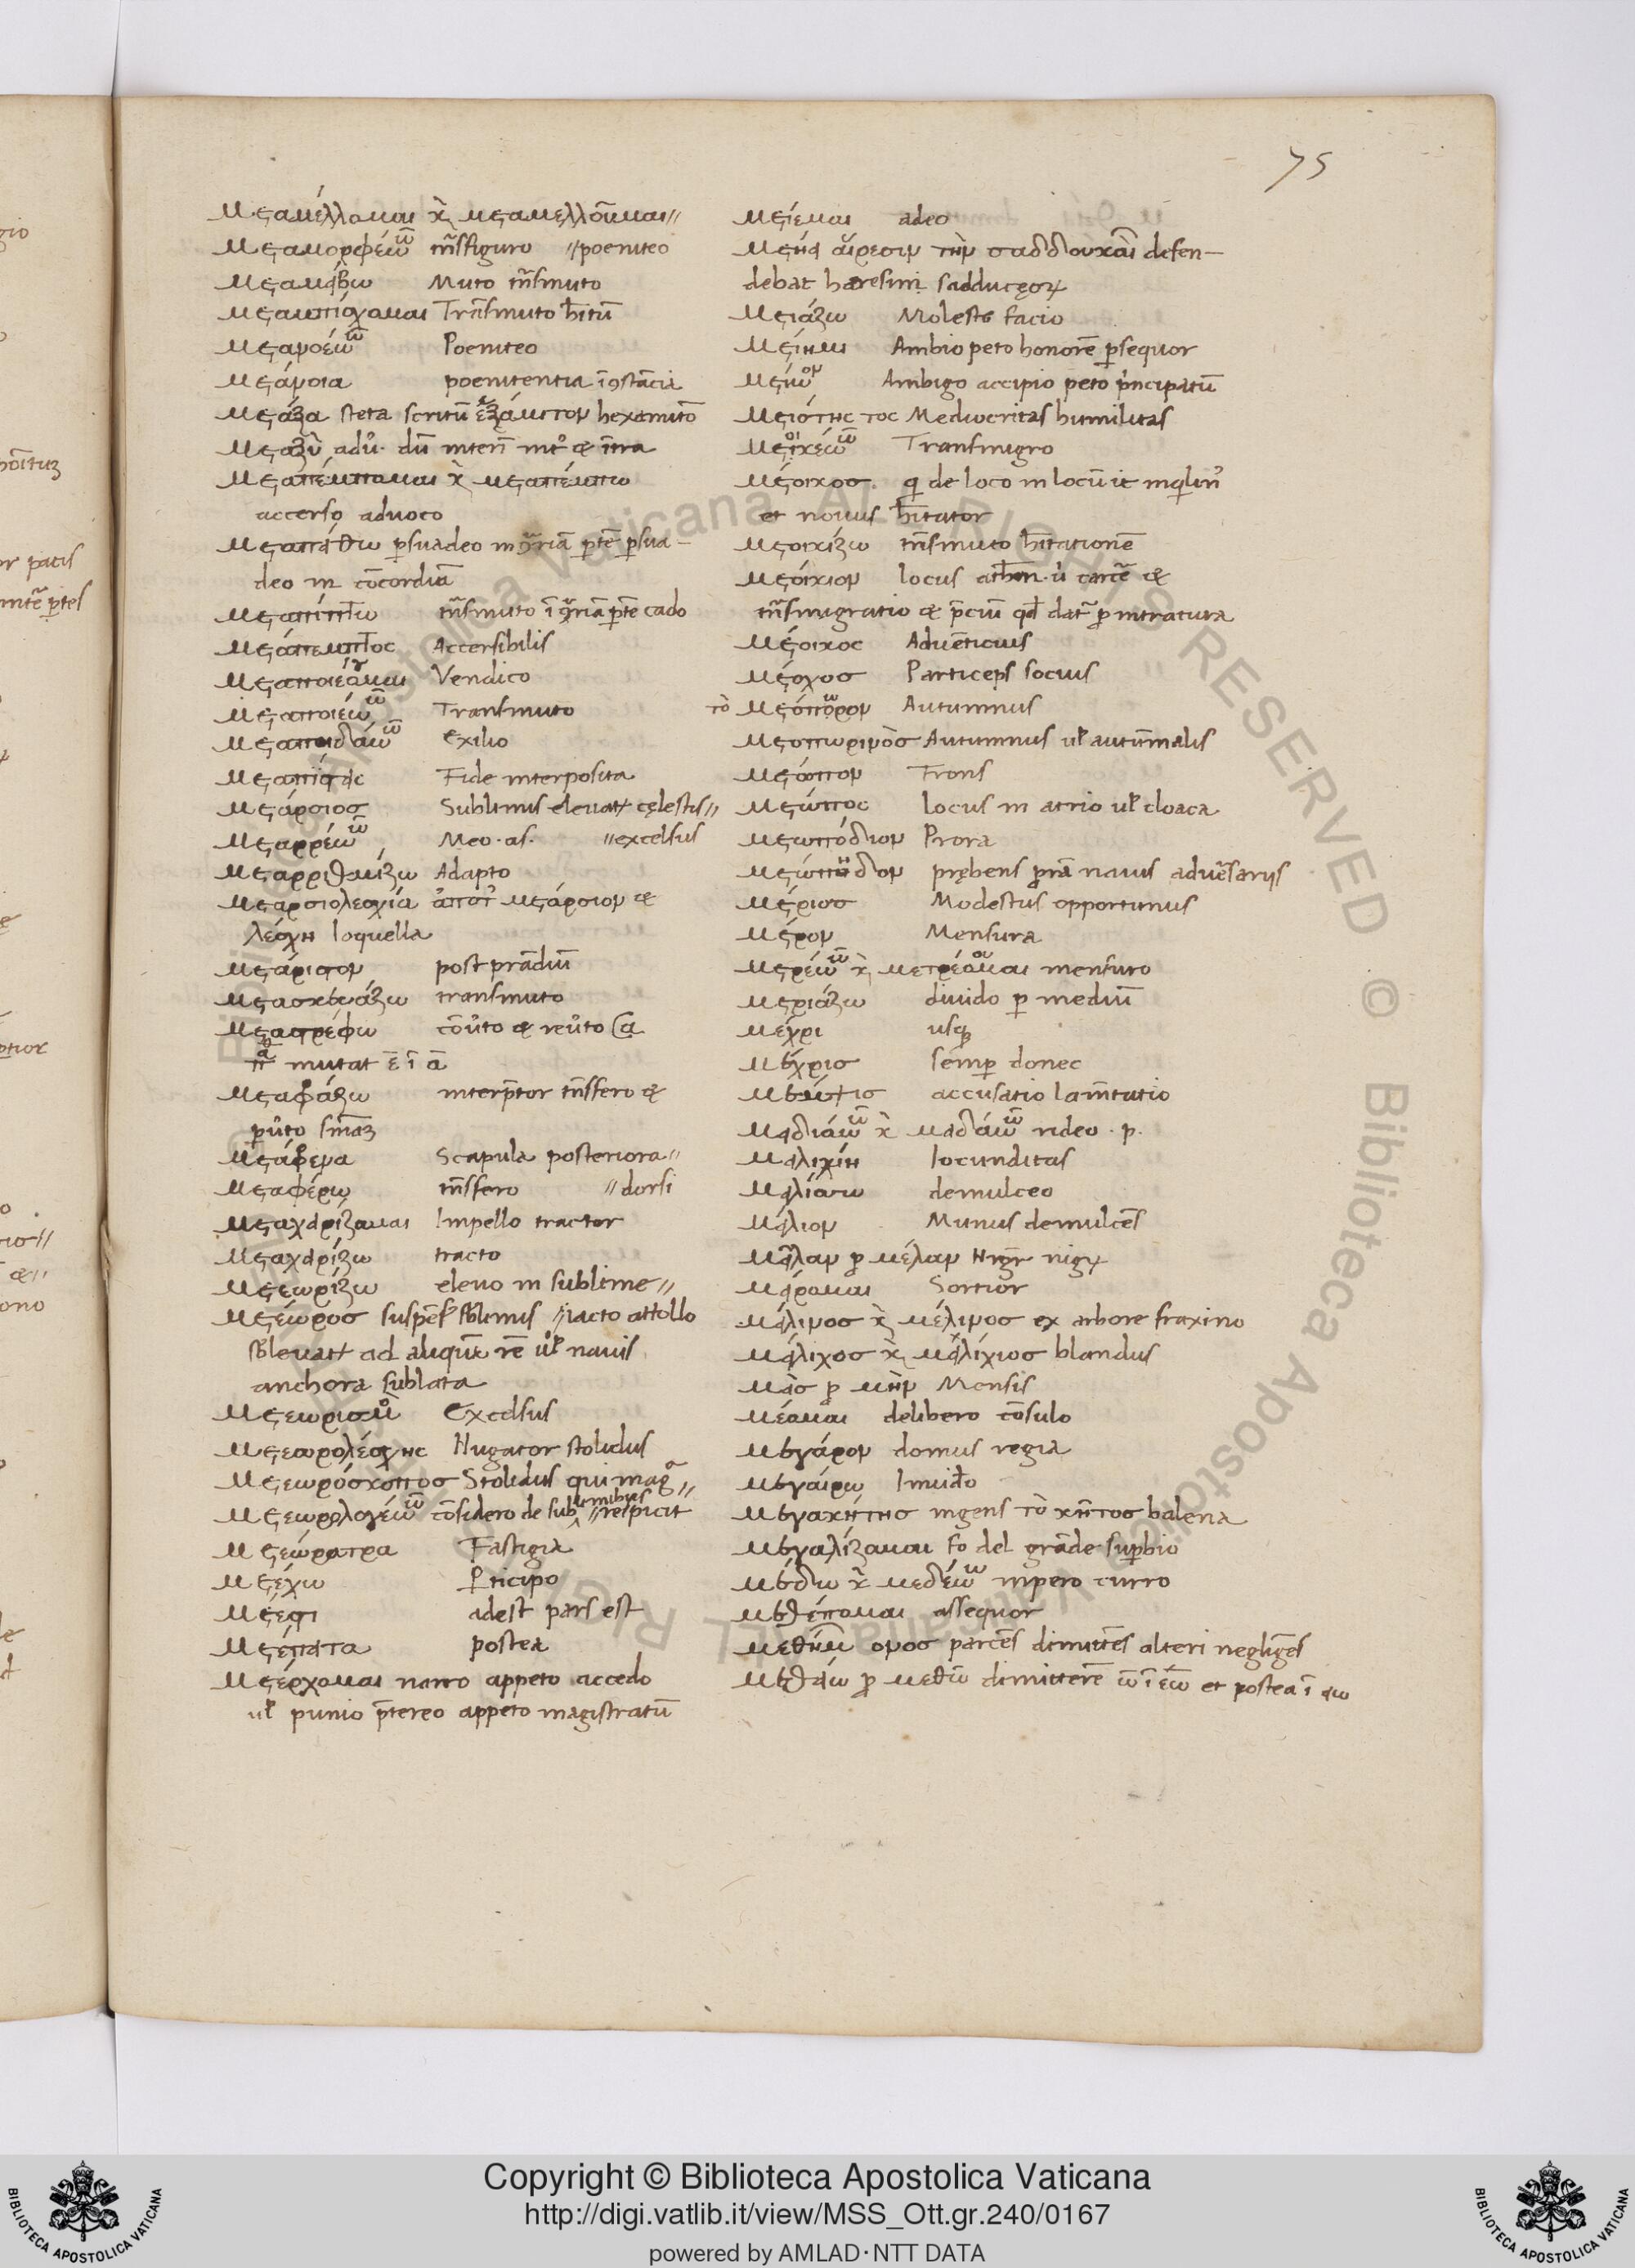 75
Μεταμέλλομαι κ̀ μεταμελλοῦμαι //
Μεταμορφέω ῶ trãsfiguro // poeniteo
Μεταμείβω Muto trãsmuto
Μεταμπίχομαι Trãsmuto hĩtũ
Μετανοέω ῶ Poeniteo
Μετάνοια poenitentia ĩ9stãcia
Μετάξα seta scritũ ἑξάμιτον hexamitõ
Μεταξὺ adv̉. dũ interĩ int̉ & ĩtra
Μεταπέμπομαι κ̀ μεταπέμπω
accerso advoco
Μεταπείθω psuadeo in 9triã ptẽ psua–
deo in cõcordiã
Μεταπίπτω trãsmuto ĩ 9triã ptẽ cado
Μετάπεμπτος Accersibilis
Μεταποιέομαι Vendico
Μεταποιέω ῶ Transmuto
Μεταπηδάω ῶ Exilio
Μεταπίστεις Fide interposita
Μετάρσιος Sublimis elevatus cęlestis //
Μεταρρέω ῶ Meo . as . // excelsus
Μεταρριθμίζω Adapto
Μεταρσιολεσχία ἀπὸ τ̃ μετάρσιον &
λέσχη loquella
Μετάριστον post prãdiũ
Μετασκευάζω transmuto
Μεταστρέφω cõv̉to & rev̉to (a
mutat ε̄ ῑ ᾱ
Μεταφράζω interp̃tor trãsfero &
pv̉to
Μετάφρενα Scapula posteriora //
Μεταφέρω trãsfero // dorsi
Μεταχειρίζομαι Impello tractor
Μεταχειρίζω tracto
Μετεωρίζω elevo in sublime //
Μετέωρος suspẽs sblimis // iacto attollo
sblevatus ad aliquẽ rẽ vl̉ navis
anchora sublata
Μετεωρισμὸ Excelsus
Μετεωρολέσχης Nugator stolidus
Μετεωρόσκοπος Stolidus qui mag̃ //
Μετεωρολογέω ῶ cõsidero de sublimibus // respicit
Μετεώρατρα Fastigia
Μετέχω Pticipo
Μέτεστι adest pars est
Μετέπειτα postea
Μετέρχομαι narro appeto accedo
vl̉ punio p̃tereo appeto magistratũ
Μετίεμαι adeo
Μετῄει αἵρεσιν τὴν σαδδουκαί defen–
debat haeresim sadduceor
Μετιάζω Moleste facio
Μέτιημι Ambio peto honorẽ psequor
Μετιὸν Ambigo accipio peto p̉ncipatũ
Μετιότης τος Mediocritas humilitas
Μετοικέω ῶ Transmigro
Μέτοικος q de loco in locũ it inqlin̉
et novus hĩtator
Μετοικίζω trãsmuto hĩtationẽ
Μετοίκιον locus athen . v̉ carcẽ &
trãsmigratio & p̃ciũ qd dat̃ p intratura
Μέτοικος Advẽticius
Μέτοχος Particeps socius
τὸ Μετόπωρον Autumnus
Μετοπωρινὸς Autumnus vl̉ autũnalis
Μέτωπον Frons
Μετώπος locus in atrio vl̉ cloaca
Μετωπόδιον Prora
Μετώπηδον prębens prorã navis advẽsariis
Μέτριος Modestus opportunus
Μέτρον Mensura
Μετρέω ῶ κ̀ μετρέομαι mensuro
Μετριάζω divido p mediũ
Μέχρι usq
Μέχρις semp donec
Μέμψις accusatio lamẽtatio
Μειδιάω ῶ κ̀ μειδάω ῶ rideo . p.
Μειλιχίη Iocunditas
Μειλίσσω demulceo
Μείλιον Munus demulcẽs
Μεῖλαν p μέλαν Nigr nigr
Μείρομαι Sortior
Μείλινος κ̀ μέλινος ex arbore fraxino
Μείλιχος κ̀ μειλίχιος blandus
Μεὶς p μὴν Mensis
Μέομαι delibero cõsulo
Μέγαρον domus regia
Μεγαίρω Invideo
Μεγακήτης ingens τὸ κῆτος balena
Μεγαλίζομαι fo del grãde supbio
Μέδω κ̀ μεδέω ῶ impero curro
Μεθέπομαι assequor
μεθήμονος parcẽs dimittẽs alteri negligẽs
Μεθείω p μεθῶ dimitterẽ ῶ ῑ εῶ et postea ῑ ειω
Copyright © Biblioteca Apostolica Vaticana
http://digi.vatlib.it/view/MSS_Ott.gr.240/0167
powered by AMLAD·NTT DATA
BIBLIOTECA APOSTOLICA VATICANA
BIBLIOTECA APOSTOLICA VATICANA